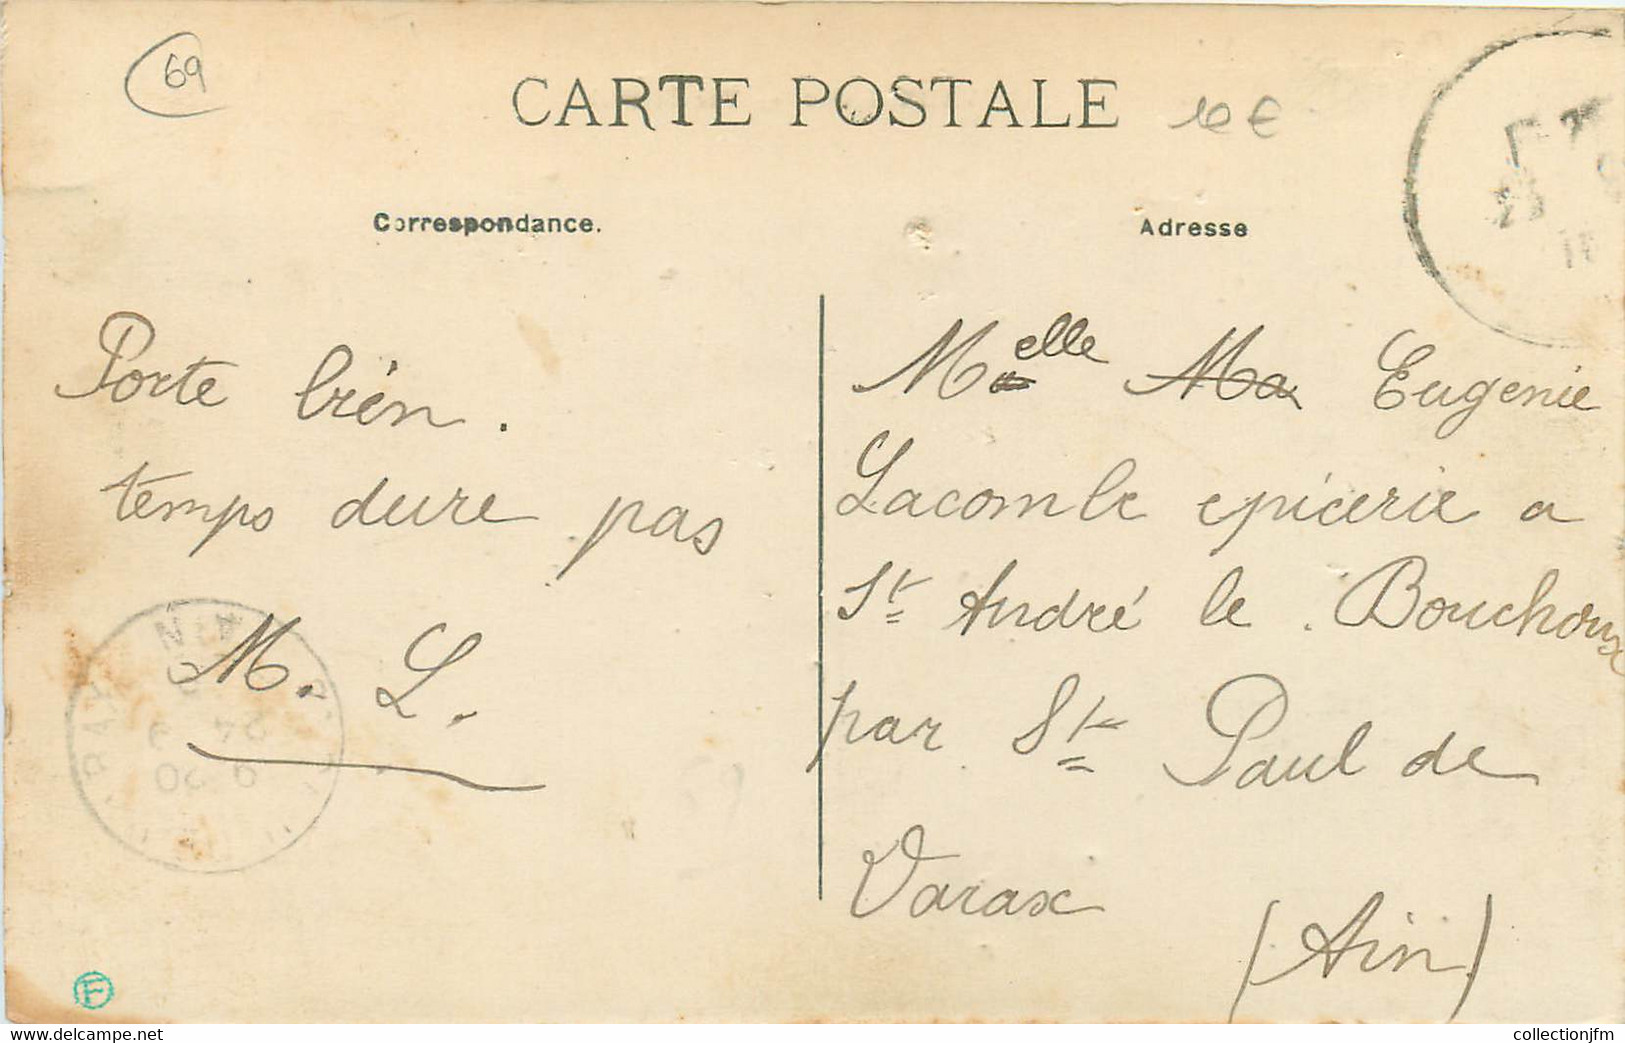 69
CARTE POSTALE
10 €
Correspondance.
Adresse
Porte bien.
temps dure pas
M. L.
Melle Ma Eugenie
Lacomble epicerie a
St André le Bouchoux
par St Paul de
Varax
(Ain)
AIN
24 9
9 20
F
collectionjfm